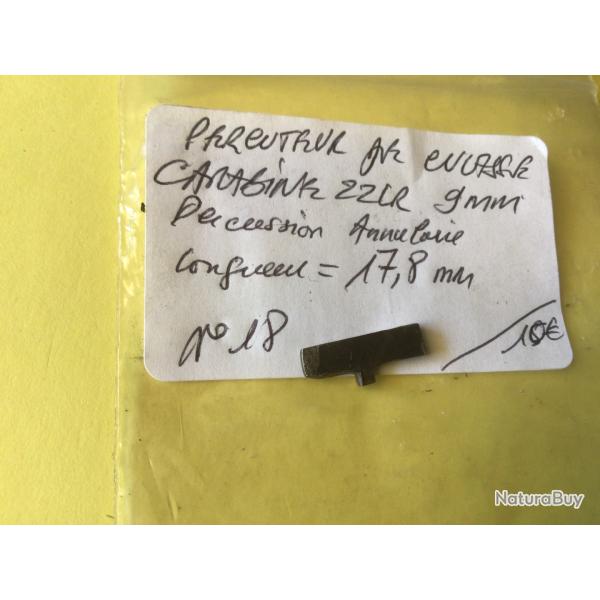 PERCUTEUR DE CULASSE
CARABINE 22LR 9mm
Percussion Annulaire
longueur = 17,8 mm
N° 18
10€
NaturaBuy